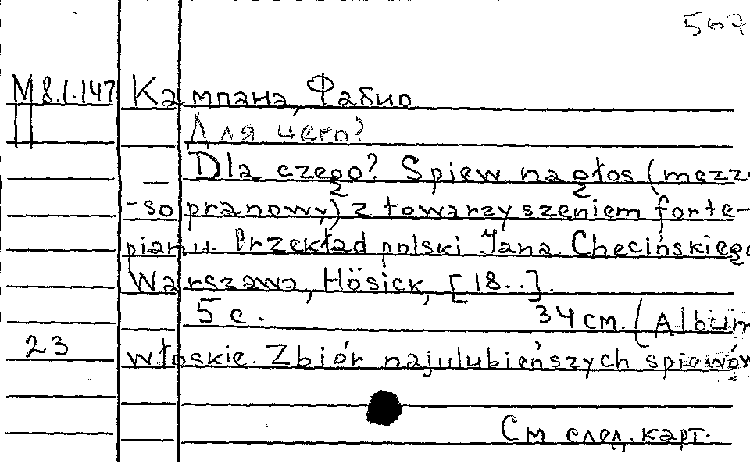 567
М 8.1.147 Кампана, Фабио
II Для чего?
Dla czego? Spiew na głos (mezz
-sopranowy) z towarzyszeniem forte-
pianu. Przekład polski Jana Chęcińskiego
Warszawa, Hösick, [18..].
5 с. 34 см. (Album
23 włoskie. Zbiór najulubieńszych spiewów
См след. карт.